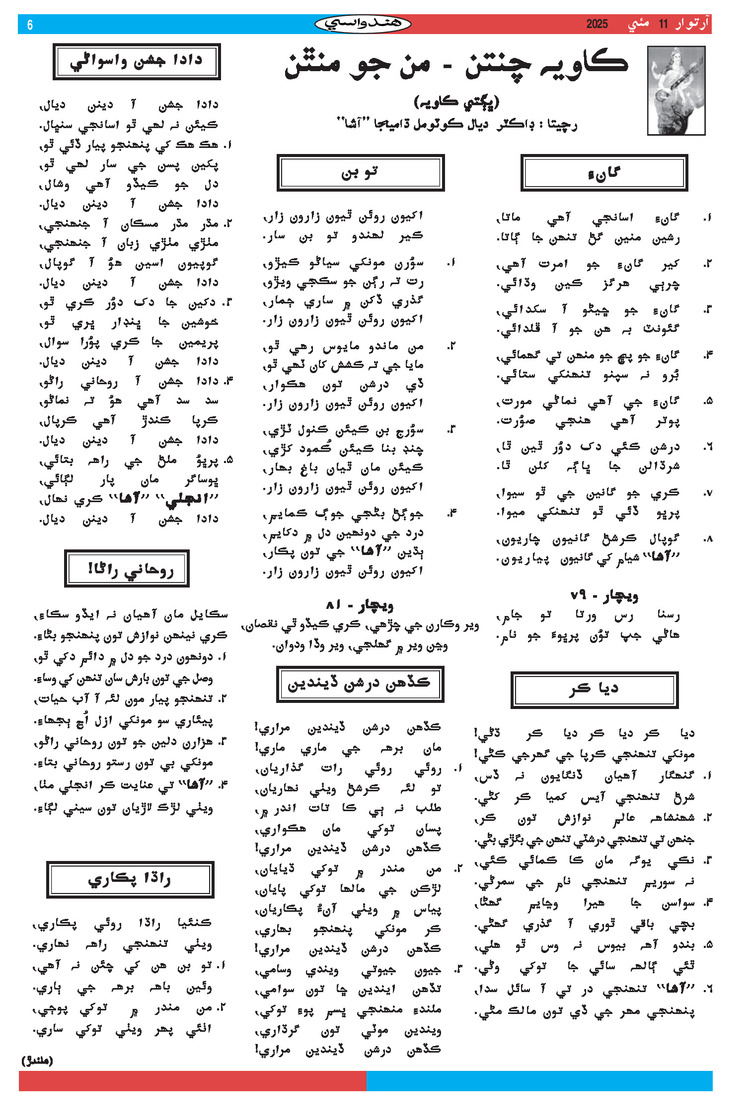 آرتوار 11 مئي 2025
هندواسي
6
ڪاويہ چنتن - من جو منٿن
(ڀڳتي ڪاويہ)
رچيتا : ڊاڪٽر ديال ڪوٽومل ڌاميجا ”آشا“
گانءِ
۱. گانءِ اسانجي آهي ماتا،
رشين منين گڻ تنهن جا ڳاتا.
۲. کير گانءِ جو امرت آهي،
چرٻي هرگز ڪين وڌائي.
۳. گانءِ جو ڇيڻو آ سڪدائي،
گئونٽ بہ هن جو آ ڦلدائي.
۴. گانءِ جو پڇ جو منهن تي گهمائي،
بُرو نہ سپنو تنهنکي ستائي.
۵. گانءِ جي آهي نماڻي مورت،
پوتر آهي هنجي صوُرت.
۶. درشن ڪئي دک دوُر ٿين ٿا،
شرڌالن جا ڀاڳہ کلن ٿا.
۷. ڪري جو گانين جي ٿو سيوا،
پرڀو ڏئي ٿو تنهنکي ميوا.
۸. گوپال ڪرشڻ گانيون چاريون،
”آشا“ شيام کي گانيون پياريون.
ويچار - ۷۹
رسنا رس ورتا تو جام،
هاڻي جپ توُن پرڀوءَ جو نام.
ديا ڪر
ديا ڪر ديا ڪر ديا ڪر ڌڻي!
مونکي تنهنجي ڪرپا جي گهرجي ڪڻي!
۱. گنهگار آهيان ڏنگايون نہ ڏس،
شرڻ تنهنجي آيس کميا ڪر کڻي.
۲. شهنشاهہ عالم نوازش تون ڪر،
جنهن تي تنهنجي درشٽي تنهن جي بگڙي بڻي.
۳. نڪي يوگہ مان ڪا ڪمائي ڪئي،
نہ سوريم تنهنجي نام جي سمرڻي.
۴. سواسن جا هيرا وڃايم گهڻا،
بچي باقي ٿوري آ گذري گهڻي.
۵. بندو آهہ بيوس نہ وس ٿو هلي،
ٿئي ڳالهہ سائي جا توکي وڻي.
۶. ”آشا“ تنهنجي در تي آ سائل سدا،
پنهنجي مهر جي ڏي تون مالڪ مڻي.
تو بن
اکيون روئن ٿيون زارون زار،
ڪير لهندو تو بن سار.
۱. سوُرن مونکي سياڻو ڪيڙو،
رت تہ رڳن جو سڪجي ويڙو،
گذري ڏکن ۾ ساري ڄمار،
اکيون روئن ٿيون زارون زار.
۲. من ماندو مايوس رهي ٿو،
مايا جي تہ ڪشش کان ٽهي ٿو،
ڏي درشن تون هڪوار،
اکيون روئن ٿيون زارون زار.
۳. سوُرج بن ڪيئن ڪنول ٽڙي،
چنڊ بنا ڪيئن ڪُمود کڙي،
ڪيئن مان ٿيان باغ بهار،
اکيون روئن ٿيون زارون زار.
۴. جوڳڻ بڻجي جوڳ ڪمايم،
درد جي دونهين دل ۾ دکايم،
ٻڌين ”آشا“ جي تون پڪار،
اکيون روئن ٿيون زارون زار.
ويچار - ۸۱
وير وڪارن جي چڙهي، ڪري ڪيڏو ئي نقصان،
وڃن وير ۾ گهلجي، وير وڏا ودوان.
ڪڏهن درشن ڏيندين
ڪڏهن درشن ڏيندين مراري!
مان برهہ جي ماري ماري!
۱. روئي روئي رات گذاريان،
تو لئہ ڪرشڻ ويٺي نهاريان،
طلب نہ ٻي ڪا تات اندر ۾،
پسان توکي مان هڪواري،
ڪڏهن درشن ڏيندين مراري!
۲. من مندر ۾ توکي ڌيايان،
لڙڪن جي مالها توکي پايان،
پياس ۾ ويٺي آنءُ پڪاريان،
ڪر مونکي پنهنجو بهاري،
ڪڏهن درشن ڏيندين مراري!
۳. جيون جيوتي ويندي وسامي،
تڏهن ايندين ڇا تون سوامي،
ملندءِ منهنجي ڀسم پوءِ توکي،
ويندين موٽي تون گرڌاري،
ڪڏهن درشن ڏيندين مراري!
دادا جشن واسواڻي
دادا جشن آ دينن ديال،
ڪيئن نہ لهي ٿو اسانجي سنڀال.
۱. هڪ هڪ کي پنهنجو پيار ڏئي ٿو،
پکين پسن جي سار لهي ٿو،
دل جو ڪيڏو آهي وشال،
دادا جشن آ دينن ديال.
۲. مڌر مڌر مسڪان آ جنهنجي،
مٺڙي مٺڙي زبان آ جنهنجي،
گوپيون اسين هوُ آ گوپال،
دادا جشن آ دينن ديال.
۳. دکين جا دک دوُر ڪري ٿو،
خوشين جا ڀنڊار ڀري ٿو،
پريمين جا ڪري پوُرا سوال،
دادا جشن آ دينن ديال.
۴. دادا جشن آ روحاني راڻو،
سد سد آهي هوُ تہ نماڻو،
ڪرپا ڪندڙ آهي ڪرپال،
دادا جشن آ دينن ديال.
۵. پرڀوُ ملڻ جي راهہ بتائي،
ڀوساگر مان پار لڳائي،
”انجلي“ ”آشا“ ڪري نهال،
دادا جشن آ دينن ديال.
روحاني راڻا!
سڪايل مان آهيان نہ ايڏو سڪاءِ،
ڪري نينهن نوازش تون پنهنجو بڻاءِ.
۱. دونهون درد جو دل ۾ دائم دکي ٿو،
وصل جي تون بارش سان تنهن کي وساءِ.
۲. تنهنجو پيار مون لئہ آ آب حيات،
پيئاري سو مونکي ازل اُڃ ٻجهاءِ.
۳. هزارن دلين جو تون روحاني راڻو،
مونکي بي تون رستو روحاني بتاءِ.
۴. ”آشا“ تي عنايت ڪر انجلي مٺا،
ويٺي لڙڪ لاڙيان تون سيني لڳاءِ.
راڌا پڪاري
ڪنئيا راڌا روئي پڪاري،
ويٺي تنهنجي راهہ نهاري.
۱. تو بن هن کي چئن نہ آهي،
وئين باهہ برهہ جي ٻاري.
۲. من مندر ۾ توکي پوڄي،
اٺئي پهر ويٺي توکي ساري.
(هلندڙ)